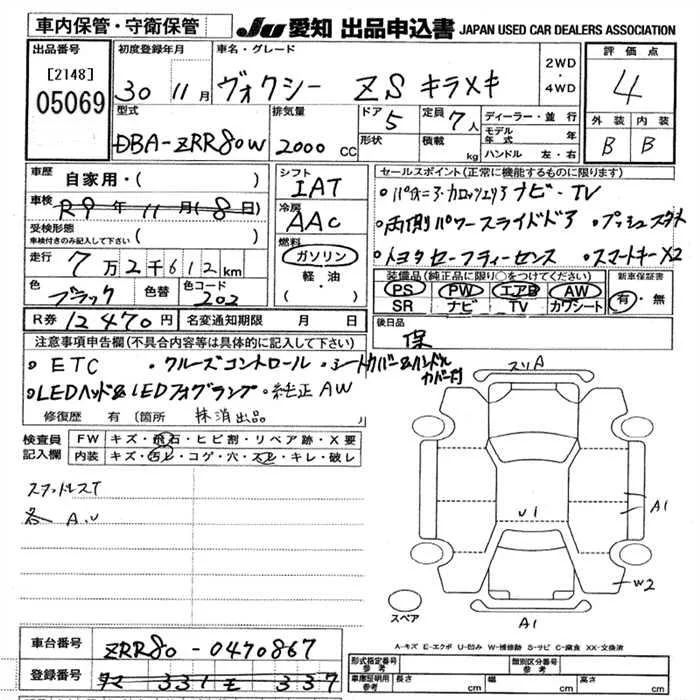 車内保管・守衛保管
JU 愛知 出品申込書 JAPAN USED CAR DEALERS ASSOCIATION
出品番号 [2148] 05069
初度登録年月 30 11月
車名・グレード ヴォクシー ZS キラメキ
2WD ・ 4WD
評価点 4
外装 内装
B B
型式 DBA-ZRR80W
排気量 2000 CC
ドア 5
形状
定員 7人
積載 kg
ディーラー・並行
モデル年式 年
ハンドル 左・右
車歴 自家用・( )
車検 R9年11月(8日)
受検形態 車検付きのみ記入して下さい ( )
走行 7万2千612km
色 ブラック 色替 色コード 202
R券 12470円 名変通知期限 月 日
シフト IAT
冷房 AAC
燃料 ガソリン
軽・油
( )
セールスポイント(正常に機能するものに限ります)
・パイオニア・カロッツェリア ナビ・TV
・両側パワースライドドア ・プッシュスタート
・トヨタセーフティーセンス ・スマートキーX2
装備品(純正品に限り○をつけてください)
PS PW エアB AW
SR ナビ TV カワシート
新車保証書 有・無
後日品
保
注意事項申告欄(不具合内容等は具体的に記入して下さい)
・ETC ・クルーズコントロール ・シートカバー&ハンドルカバー付
・LEDヘッド&LEDフォグランプ ・純正AW
修復歴 有〔箇所 抹消出品 〕
検査員記入欄
FW キズ・飛石・ヒビ割・リペア跡・X要
内装 キズ・汚レ・コゲ・穴・スレ・キレ・破レ
スタッドレスT
各 A.U
スリA
U1
A1
W2
A1
スペア
A-キズ E-エクボ U-凹み W-補修跡 S-サビ C-腐食 XX-交換済
車台番号 ZRR80-0470867
登録番号 331 モ 337
形式指定番号 参考
類別区分番号 参考
車庫証明用 参考 長さ cm 幅 cm 高さ cm